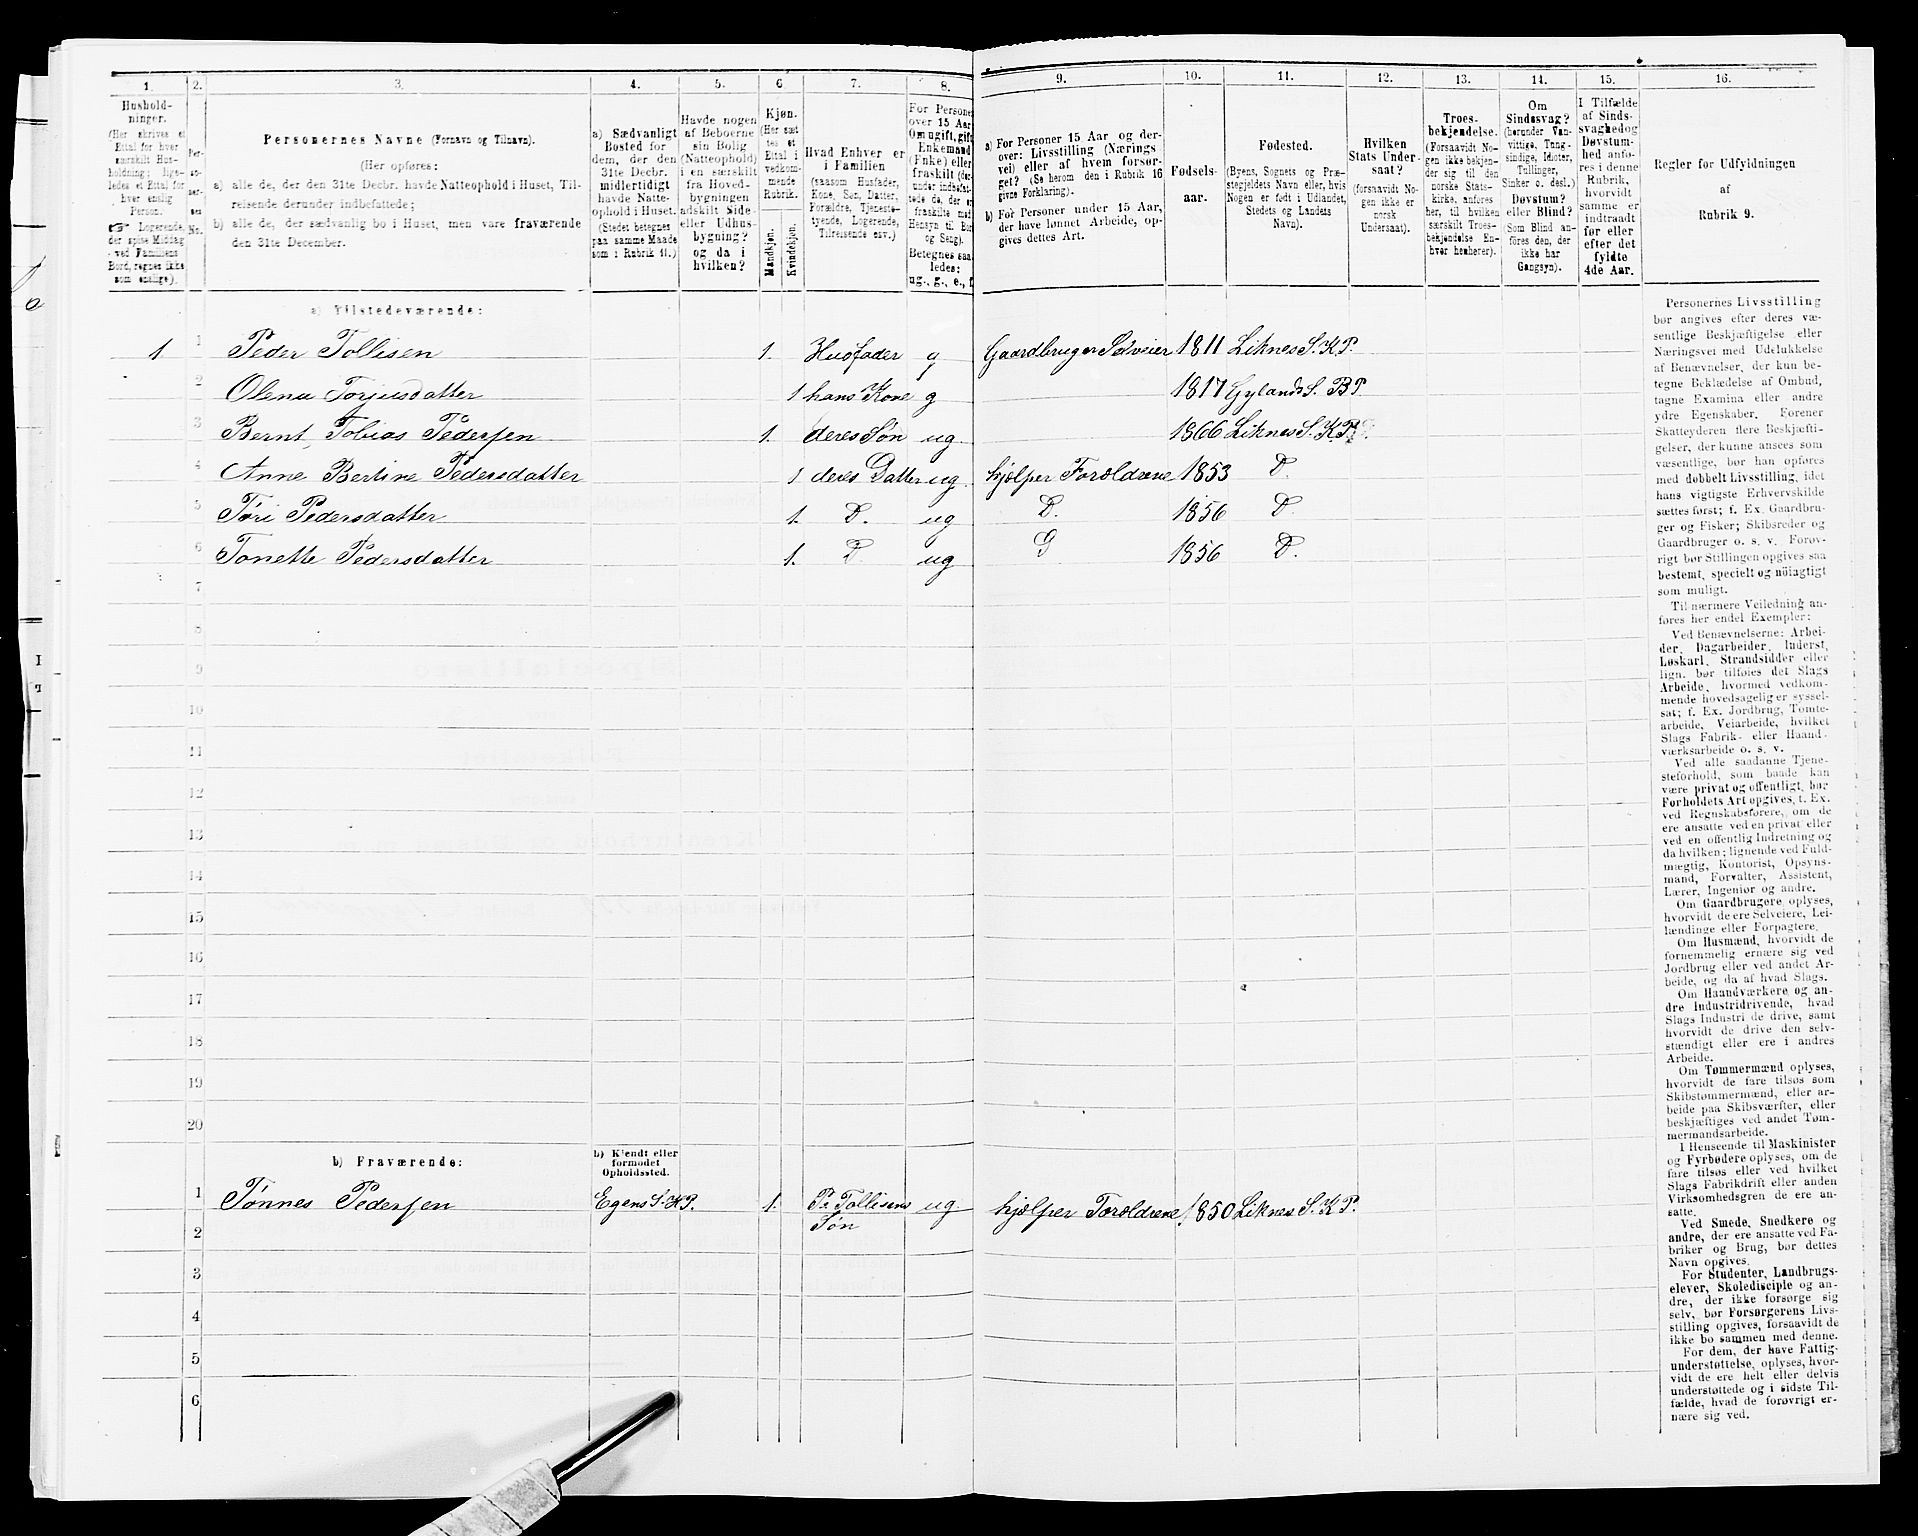 1. 2. 3. 4. 5. 6. 7. 8. 9. 10. 11. 12. 13. 14. 15. 16.
Personernes Navne (Fornavn og Tilnavn).
(Her opføres:
a) alle de, der den 31te Decbr. havde Natteophold i Huset, Til-
reisende derunder indbefattede;
b) alle de, der sædvanlig bo i Huset, men vare fraværende
den 31te December.
Hushold-
ninger.
(Her skrives et
Ettal for hver
særskilt Hus-
holdning; lige-
ledes et Ettal for
hver enslig
Person.
☞ Logerende,
der spise Middag
ved Familiens
Bord, regnes ikke
som enslige).
a) Sædvanligt
Bosted for
dem, der den
31te Decbr.
midlertidigt
havde Natte-
ophold i Huset.
(Stedet betegnes
paa samme Maade
som i Rubrik 11.)
Havde nogen
af Beboerne
sin Bolig
(Natteophold)
i en særskilt
fra Hoved-
bygningen
adskilt Side-
eller Udhus-
bygning?
og da i
hvilken?
Kjøn.
(Her sæt-
tes et
Ettal i
vedkom-
mende
Rubrik.
Mandkjøn.
Kvindekjøn.
Hvad Enhver er
i Familien
(saasom Husfader,
Kone, Søn, Datter,
Forældre, Tjeneste-
tyende, Logerende,
Tilreisende osv.)
For Personer
over 15 Aar
Om ugift, gift,
Enkemand
(Enke) eller
fraskilt
Betegnes saa-
ledes:
ug., g., e., f.
a) For Personer 15 Aar og der-
over: Livsstilling (Nærings-
vei) eller af hvem forsør-
get? (Se herom den i Rubrik 16
givne Forklaring).
b) For Personer under 15 Aar,
der have lønnet Arbeide, op-
gives dettes Art.
Fødsels-
aar.
Fødested.
(Byens, Sognets og Præ-
stegjeldets Navn eller, hvis
Nogen er født i Udlandet,
Stedets og Landets
Navn).
Hvilken
Stats Under-
saat?
(forsaavidt No-
gen ikke er
norsk
Undersaat).
Troes-
bekjendelse.
(Forsaavidt No-
gen ikke bekjen-
der sig til den
norske Stats-
kirke, anføres
her, til hvilken
særskilt Troes-
bekjendelse En-
hver henhører).
Om
Sindssvag?
(herunder Van-
vittige, Tung-
sindige, Idioter,
Tullinger,
Sinker o. desl.)
Døvstum?
eller Blind?
(Som Blind an-
føres den, der
ikke har
Gangsyn).
I Tilfælde
af Sinds-
svaghed og
Døvstum-
hed anfø-
res i denne
Rubrik,
hvorvidt
samme er
indtraadt
før eller
efter det
fyldte
4de Aar.
Regler for Udfyldningen
af
Rubrik 9.
a) Tilstedeværende:
1 1 Peder Tollisen 1. Husfader g Gaardbruger Selveier 1811 Liknes S. K P.
2 Olena Torjusdatter 1 hans Kone g 1817 Gylands S. B P.
3 Bernt Tobias Pedersen 1. deres Søn ug. 1866 Liknes S. K P.
4 Anne Bertine Pedersdatter 1 deres Datter ug. hjælper Forældrene 1853 D.
5 Tøri Pedersdatter 1. D. ug D. 1856 D.
6 Tonette Pedersdatter 1. D. ug D 1856 D.
7
8
9
10
11
12
13
14
15
16
17
18
19
20
b) Fraværende:
b) Kjendt eller
formodet
Opholdssted.
1 Tønnes Pedersen Egens S. K P. 1. Pe Tollisens ug. hjælper Forældrene 1850 Liknes S. K P.
2 Søn
3
4
5
6
Personernes Livsstilling
bør angives efter deres væ-
sentlige Beskjæftigelse eller
Næringsvei med Udelukkelse
af Benævnelser, der kun be-
tegne Beklædelse af Ombud,
tagne Examina eller andre
ydre Egenskaber. Forener
Skatteyderen flere Beskjæfti-
gelser, der kunne ansees som
væsentlige, bør han opføres
med dobbelt Livsstilling, idet
hans vigtigste Erhvervskilde
sættes først; f. Ex. Gaardbru-
ger og Fisker; Skibsreder og
Gaardbruger o. s. v. Forøv-
rigt bør Stillingen opgives saa
bestemt, specielt og nöiagtigt
som muligt.
Til nærmere Veiledning an-
føres her endel Exempler:
Ved Benævnelserne: Arbei-
der, Dagarbeider, Inderst,
Løskarl, Strandsidder eller
lign. bør tilføies det Slags
Arbeide, hvormed vedkom-
mende hovedsagelig er syssel-
sat; f. Ex. Jordbrug, Tomte-
arbeide, Veiarbeide, hvilket
Slags Fabrik- eller Haand-
værksarbeide o. s. v.
Ved alle saadanne Tjene-
steforhold, som baade kan
være privat og offentligt, bør
Forholdets Art opgives, t. Ex.
ved Regnskabsførere, om de
ere ansatte ved en privat eller
ved en offentlig Indretning og
da hvilken; lignende ved Fuld-
mægtig, Kontorist, Opsyns-
mand, Forvalter, Assistent,
Lærer, Ingeniør og andre.
Om Gaardbrugere oplyses,
hvorvidt de ere Selveiere, Lei-
lændinge eller Forpagtere.
Om Husmænd, hvorvidt de
fornemmelig ernære sig ved
Jordbrug eller ved andet Ar-
beide, og da af hvad Slags.
Om Haandværkere og an-
dre Industridrivende, hvad
Slags Industri de drive, samt
hvorvidt de drive den selv-
stændigt eller ere i andres
Arbeide.
Om Tømmermænd oplyses,
hvorvidt de fare tilsøs som
Skibstømmermænd, eller ar-
beide paa Skibsværfter, eller
beskjæftiges ved andet Tøm-
mermandsarbeide.
I Henseende til Maskinister
og Fyrbødere oplyses, om de
fare tilsøs eller ved hvilket
Slags Fabrikdrift eller anden
Virksomhedsgren de ere an-
satte.
Ved Smede, Snedkere og
andre, der ere ansatte ved Fa-
briker og Brug, bør dettes
Navn opgives.
For Studenter, Landbrugs-
elever, Skoledisciple og an-
dre, der ikke forsørge sig
selv, bør Forsørgerens Livs-
stilling opgives, forsaavidt de
ikke bo sammen med denne.
For dem, der have Fattig-
understøttelse, oplyses, hvor-
vidt de ere helt eller delvis
understøttede og i sidste Til-
fælde, hvad de forøvrigt er-
nære sig ved.